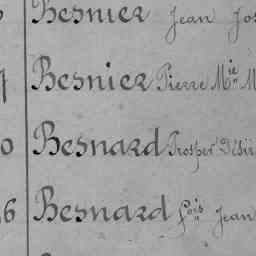 Besnier Jean Jos
Besnier Pierre Mie M
0 Besnard Prosper Désir
6 Besnard Fois Jean